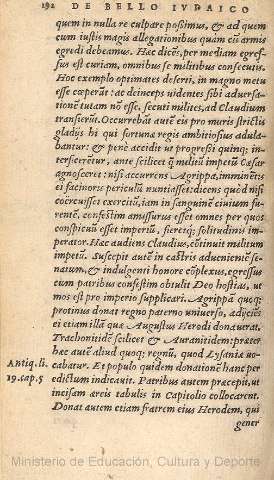 192 DE BELLO IVDAICO
quem in nulla re culpare possimus, & ad quem
cum iustis magis allegationibus quàm cū armis
egredi debeamus. Hæc dicēs, per mediam egres-
sus est curiam, omnibus se militibus consecutis.
Hoc exemplo optimates deserti, in magno metu
esse cœperāt: ac deinceps uidentes sibi aduersa-
tionē tutam nō esse, secuti milites, ad Claudium
transierūt. Occurrebāt autē eis pro muris strictis
gladijs hi qui fortuna regis ambitiosius adula-
bantur: & penè accidit ut progressi quinq; in-
terficerētur, ante scilicet q̄ militū impetū Cæsar
agnosceret: nisi accurrens Agrippa, imminētis
ei facinoris periculū nuntiasset: dicens quòd nisi
cōërcuisset exercitū, iam in sanguinē ciuium fu-
rentē, confestim amissurus esset omnes per quos
conspicuū esset imperiū, fieretq; solitudinis im-
perator. Hæc audiens Claudius, cōtinuit militum
impetū. Suscepit autē in castris aduenienūē se-
natum, & indulgenti honore cōplexus, egressus
cum patribus confestim obtulit Deo hostias, ut
mos est pro imperio supplicari. Agrippā quoq;
protinus donat regno paterno uniuerso, adijciēs
ei etiam illa quæ Augustus Herodi donauerat,
Trachonitidē scilicet & Auranitidem: præter
hæc autē aliud quoq; regnū, quod Lysaniæ uo-
Antiq. li. cabatur. Et populo quidem donationē hanc per
19.cap.5 edictum indicauit. Patribus autem præcepit, ut
incisam æreis tabulis in Capitolio collocarent.
Donat autem etiam fratrem eius Herodem, qui
gener
Ministerio de Educación, Cultura y Deporte